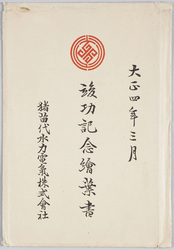 大正四年三月
竣功記念繪葉書
猪苗代水力電氣株式會社